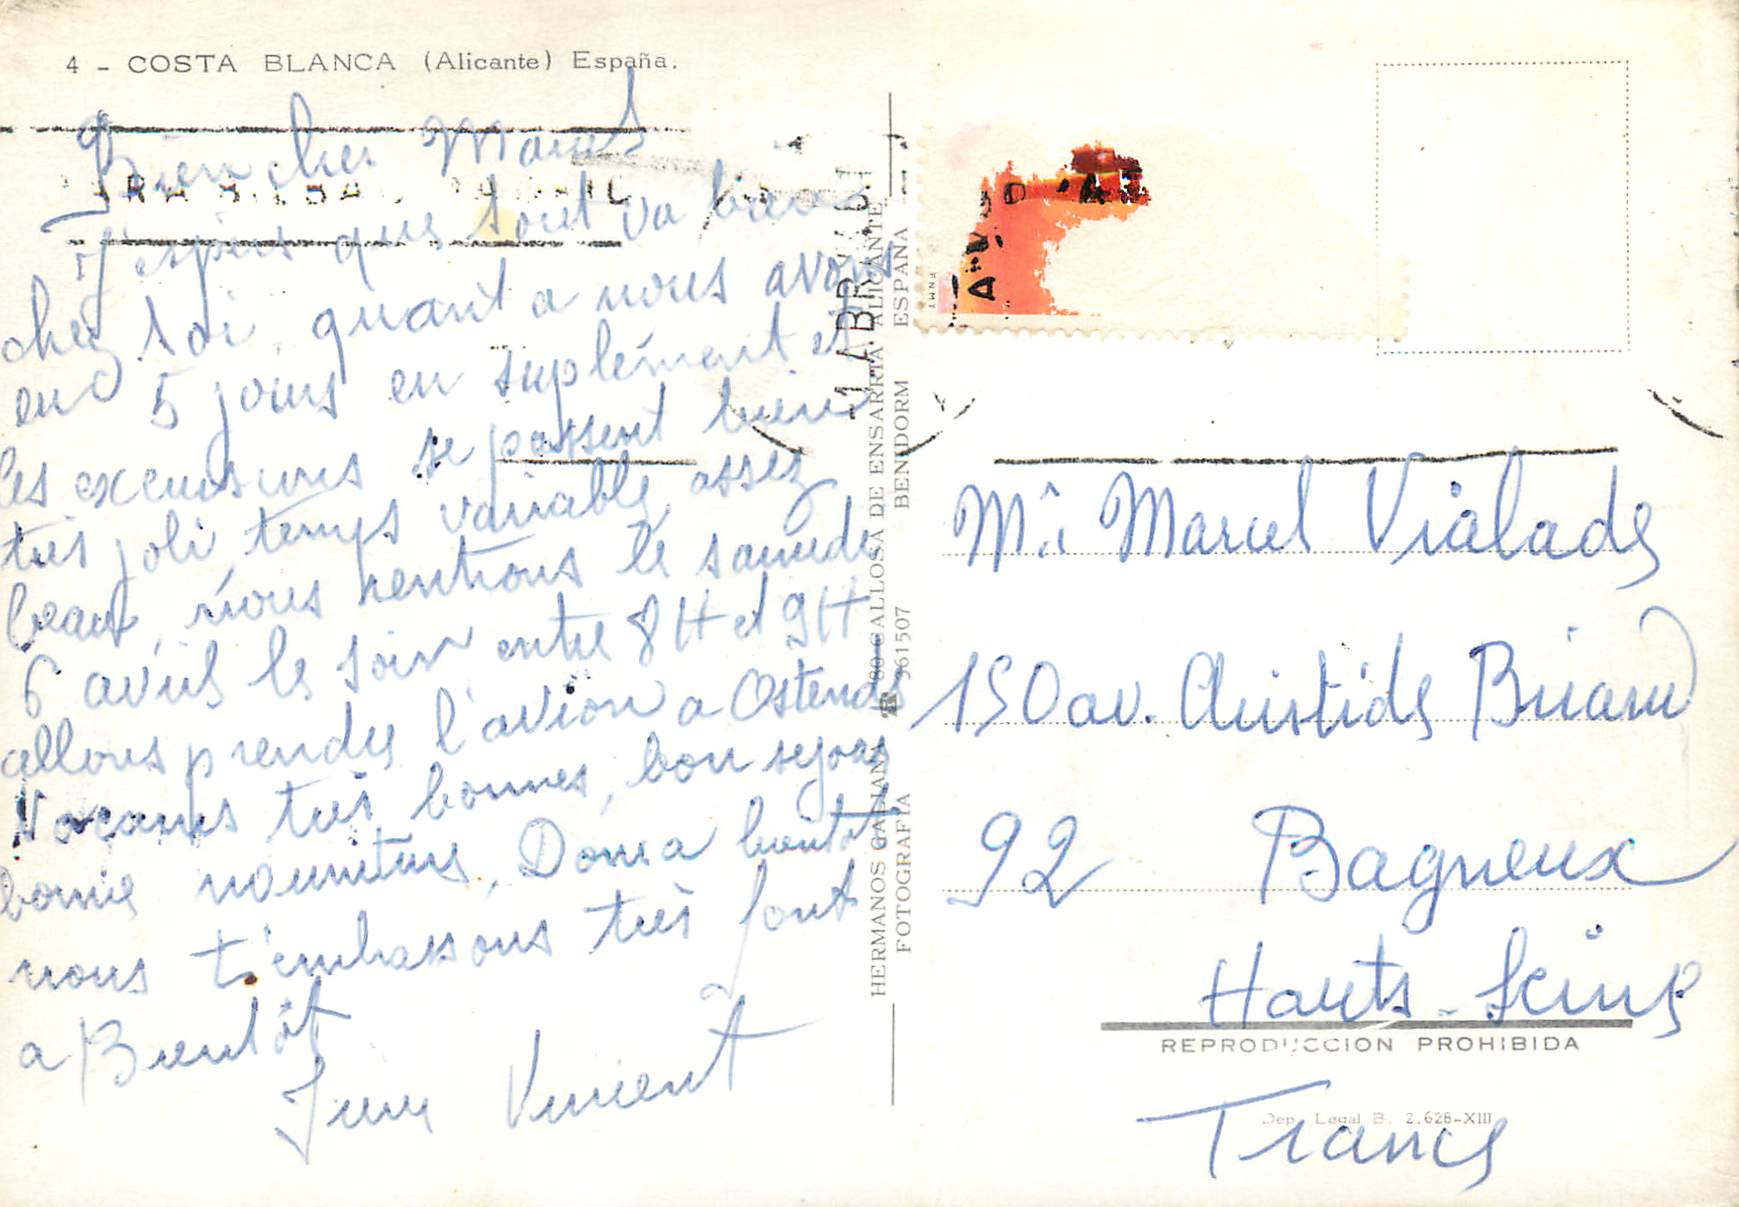 4 - COSTA BLANCA (Alicante) España.
Bien cher Marcel
J'espère que tout va bien
chez toi, quant a nous avons
eu 5 jours en suplément et
les excursions se passent bien
très joli, temps variable, assez
beau, nous rentrons le samedi
6 avril le soir entre 8H et 9H
allons prendre l'avion a Ostende
Vacances très bonnes, bon sejour
bonne nourriture, Donc a bientot
nous t'embrassons très fort
a Bientôt
Vincent
HERMANOS GALIANA 80 CALLOSA DE ENSARRIA ALICANTE
FOTOGRAFIA 961507 BENIDORM ESPAÑA
1 ABR
FNMT
Mr Marcel Vialade
150 av. Aristide Briand
92 Bagneux
Hauts-Seine
REPRODUCCION PROHIBIDA
Dep. Legal B. 2.628-XIII
France